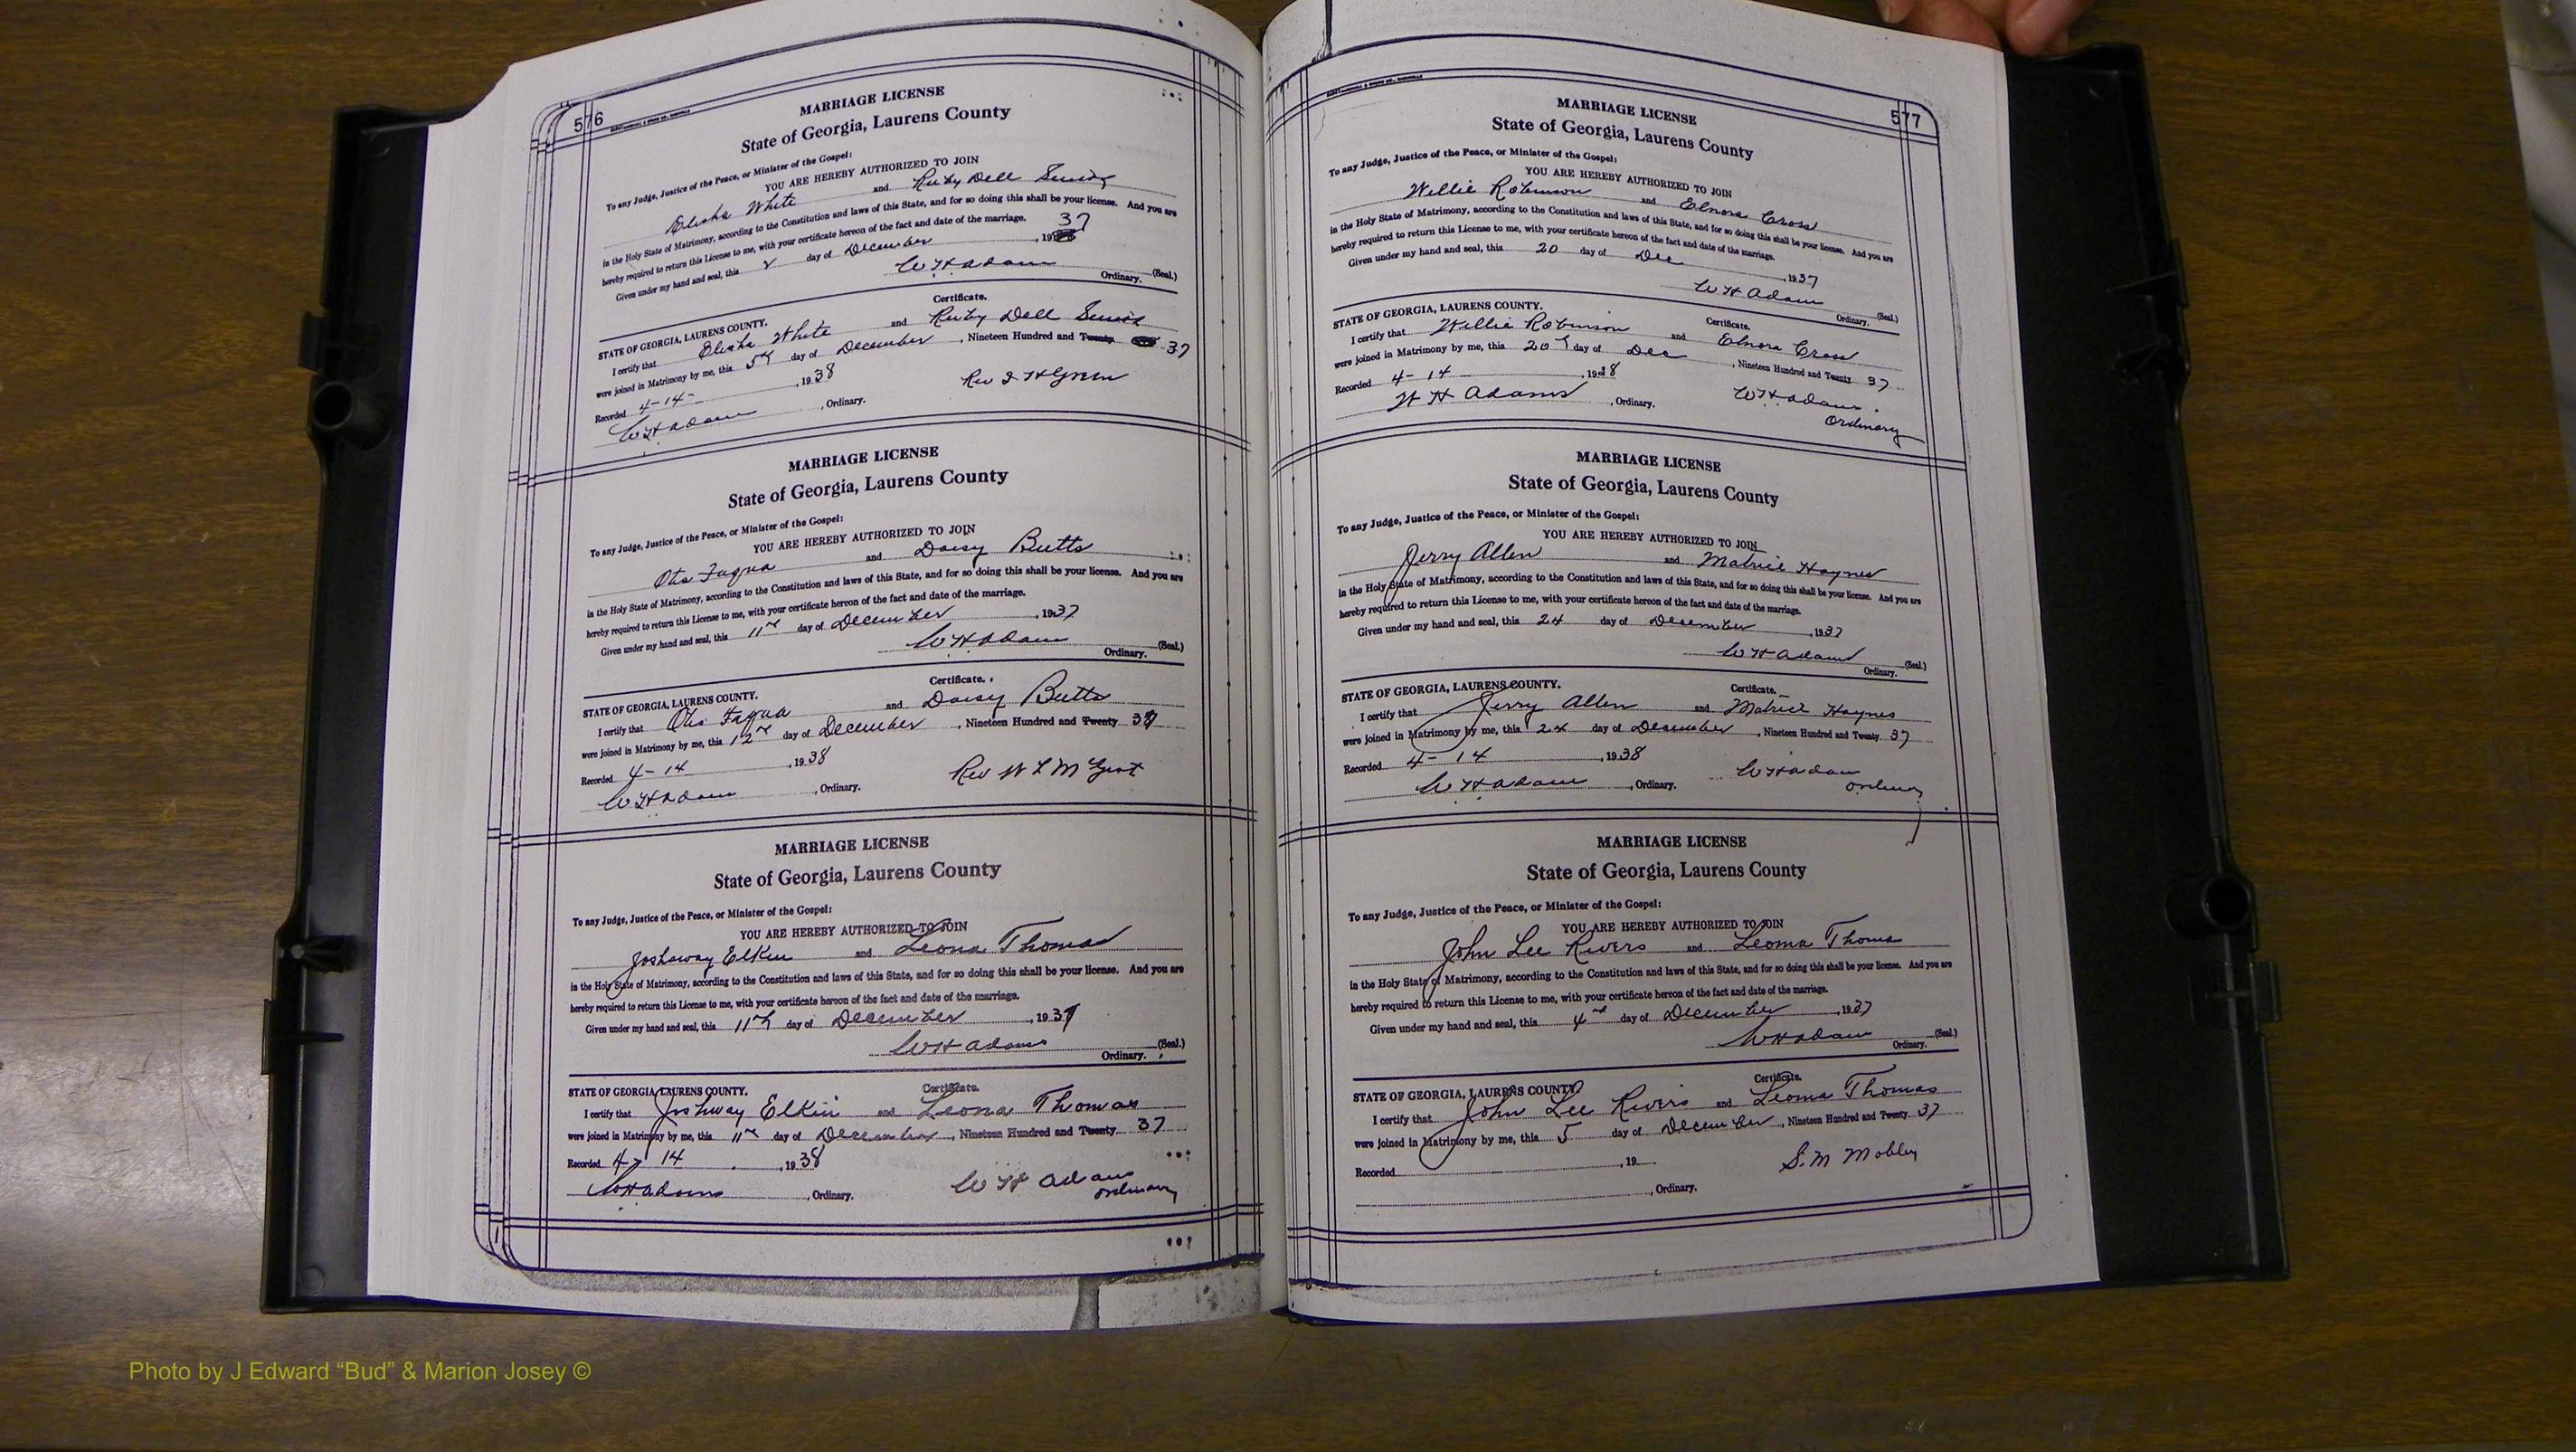 576
MARRIAGE LICENSE
State of Georgia, Laurens County
To any Judge, Justice of the Peace, or Minister of the Gospel:
YOU ARE HEREBY AUTHORIZED TO JOIN
Elisha White and Ruby Dell
in the Holy State of Matrimony, according to the Constitution and laws of this State, and for so doing this shall be your license. And you are
hereby required to return this License to me, with your certificate hereon of the fact and date of the marriage.
Given under my hand and seal, this day of December, 19 37
W H Adams (Seal.)
Ordinary.
Certificate.
STATE OF GEORGIA, LAURENS COUNTY.
I certify that Elisha White and Ruby Dell
were joined in Matrimony by me, this 5th day of December, Nineteen Hundred and Twenty 37
Recorded 4-14-, 19 38
Rev
W H Adams, Ordinary.
MARRIAGE LICENSE
State of Georgia, Laurens County
To any Judge, Justice of the Peace, or Minister of the Gospel:
YOU ARE HEREBY AUTHORIZED TO JOIN
Otis Fuqua and Daisy Butts
in the Holy State of Matrimony, according to the Constitution and laws of this State, and for so doing this shall be your license. And you are
hereby required to return this License to me, with your certificate hereon of the fact and date of the marriage.
Given under my hand and seal, this 11th day of December, 1937
W H Adams (Seal.)
Ordinary.
Certificate.
STATE OF GEORGIA, LAURENS COUNTY.
I certify that Otis Fuqua and Daisy Butts
were joined in Matrimony by me, this 12th day of December, Nineteen Hundred and Twenty 37
Recorded 4-14, 19 38
Rev W L
W H Adams, Ordinary.
MARRIAGE LICENSE
State of Georgia, Laurens County
To any Judge, Justice of the Peace, or Minister of the Gospel:
YOU ARE HEREBY AUTHORIZED TO JOIN
Joshaway Elkin and Leona Thomas
in the Holy State of Matrimony, according to the Constitution and laws of this State, and for so doing this shall be your license. And you are
hereby required to return this License to me, with your certificate hereon of the fact and date of the marriage.
Given under my hand and seal, this 11th day of December, 19 37
W H Adams (Seal.)
Ordinary.
Certificate.
STATE OF GEORGIA, LAURENS COUNTY.
I certify that Joshway Elkin and Leona Thomas
were joined in Matrimony by me, this 11th day of December, Nineteen Hundred and Twenty 37
Recorded 4-14, 19 38
W H Adams
ordinary
W H Adams, Ordinary.
577
MARRIAGE LICENSE
State of Georgia, Laurens County
To any Judge, Justice of the Peace, or Minister of the Gospel:
YOU ARE HEREBY AUTHORIZED TO JOIN
Willie Robinson and Elnora Cross
in the Holy State of Matrimony, according to the Constitution and laws of this State, and for so doing this shall be your license. And you are
hereby required to return this License to me, with your certificate hereon of the fact and date of the marriage.
Given under my hand and seal, this 20 day of Dec, 1937
W H Adams (Seal.)
Ordinary.
Certificate.
STATE OF GEORGIA, LAURENS COUNTY.
I certify that Willie Robinson and Elnora Cross
were joined in Matrimony by me, this 20th day of Dec, Nineteen Hundred and Twenty 37
Recorded 4-14, 1938
W H Adams, Ordinary.
W H Adams.
Ordinary
MARRIAGE LICENSE
State of Georgia, Laurens County
To any Judge, Justice of the Peace, or Minister of the Gospel:
YOU ARE HEREBY AUTHORIZED TO JOIN
Jerry Allen and Matrice Haynes
in the Holy State of Matrimony, according to the Constitution and laws of this State, and for so doing this shall be your license. And you are
hereby required to return this License to me, with your certificate hereon of the fact and date of the marriage.
Given under my hand and seal, this 24 day of December, 1937
W H Adams (Seal.)
Ordinary.
Certificate.
STATE OF GEORGIA, LAURENS COUNTY.
I certify that Jerry Allen and Matrice Haynes
were joined in Matrimony by me, this 24 day of December, Nineteen Hundred and Twenty 37
Recorded 4-14, 1938
W H Adams
ordinary
W H Adams, Ordinary.
MARRIAGE LICENSE
State of Georgia, Laurens County
To any Judge, Justice of the Peace, or Minister of the Gospel:
YOU ARE HEREBY AUTHORIZED TO JOIN
John Lee Rivers and Leoma Thomas
in the Holy State of Matrimony, according to the Constitution and laws of this State, and for so doing this shall be your license. And you are
hereby required to return this License to me, with your certificate hereon of the fact and date of the marriage.
Given under my hand and seal, this 4th day of December, 1937
W H Adams (Seal.)
Ordinary.
Certificate.
STATE OF GEORGIA, LAURENS COUNTY
I certify that John Lee Rivers and Leoma Thomas
were joined in Matrimony by me, this 5 day of December, Nineteen Hundred and Twenty 37
Recorded , 19
S. M Mobley
, Ordinary.
Photo by J Edward “Bud” & Marion Josey ©